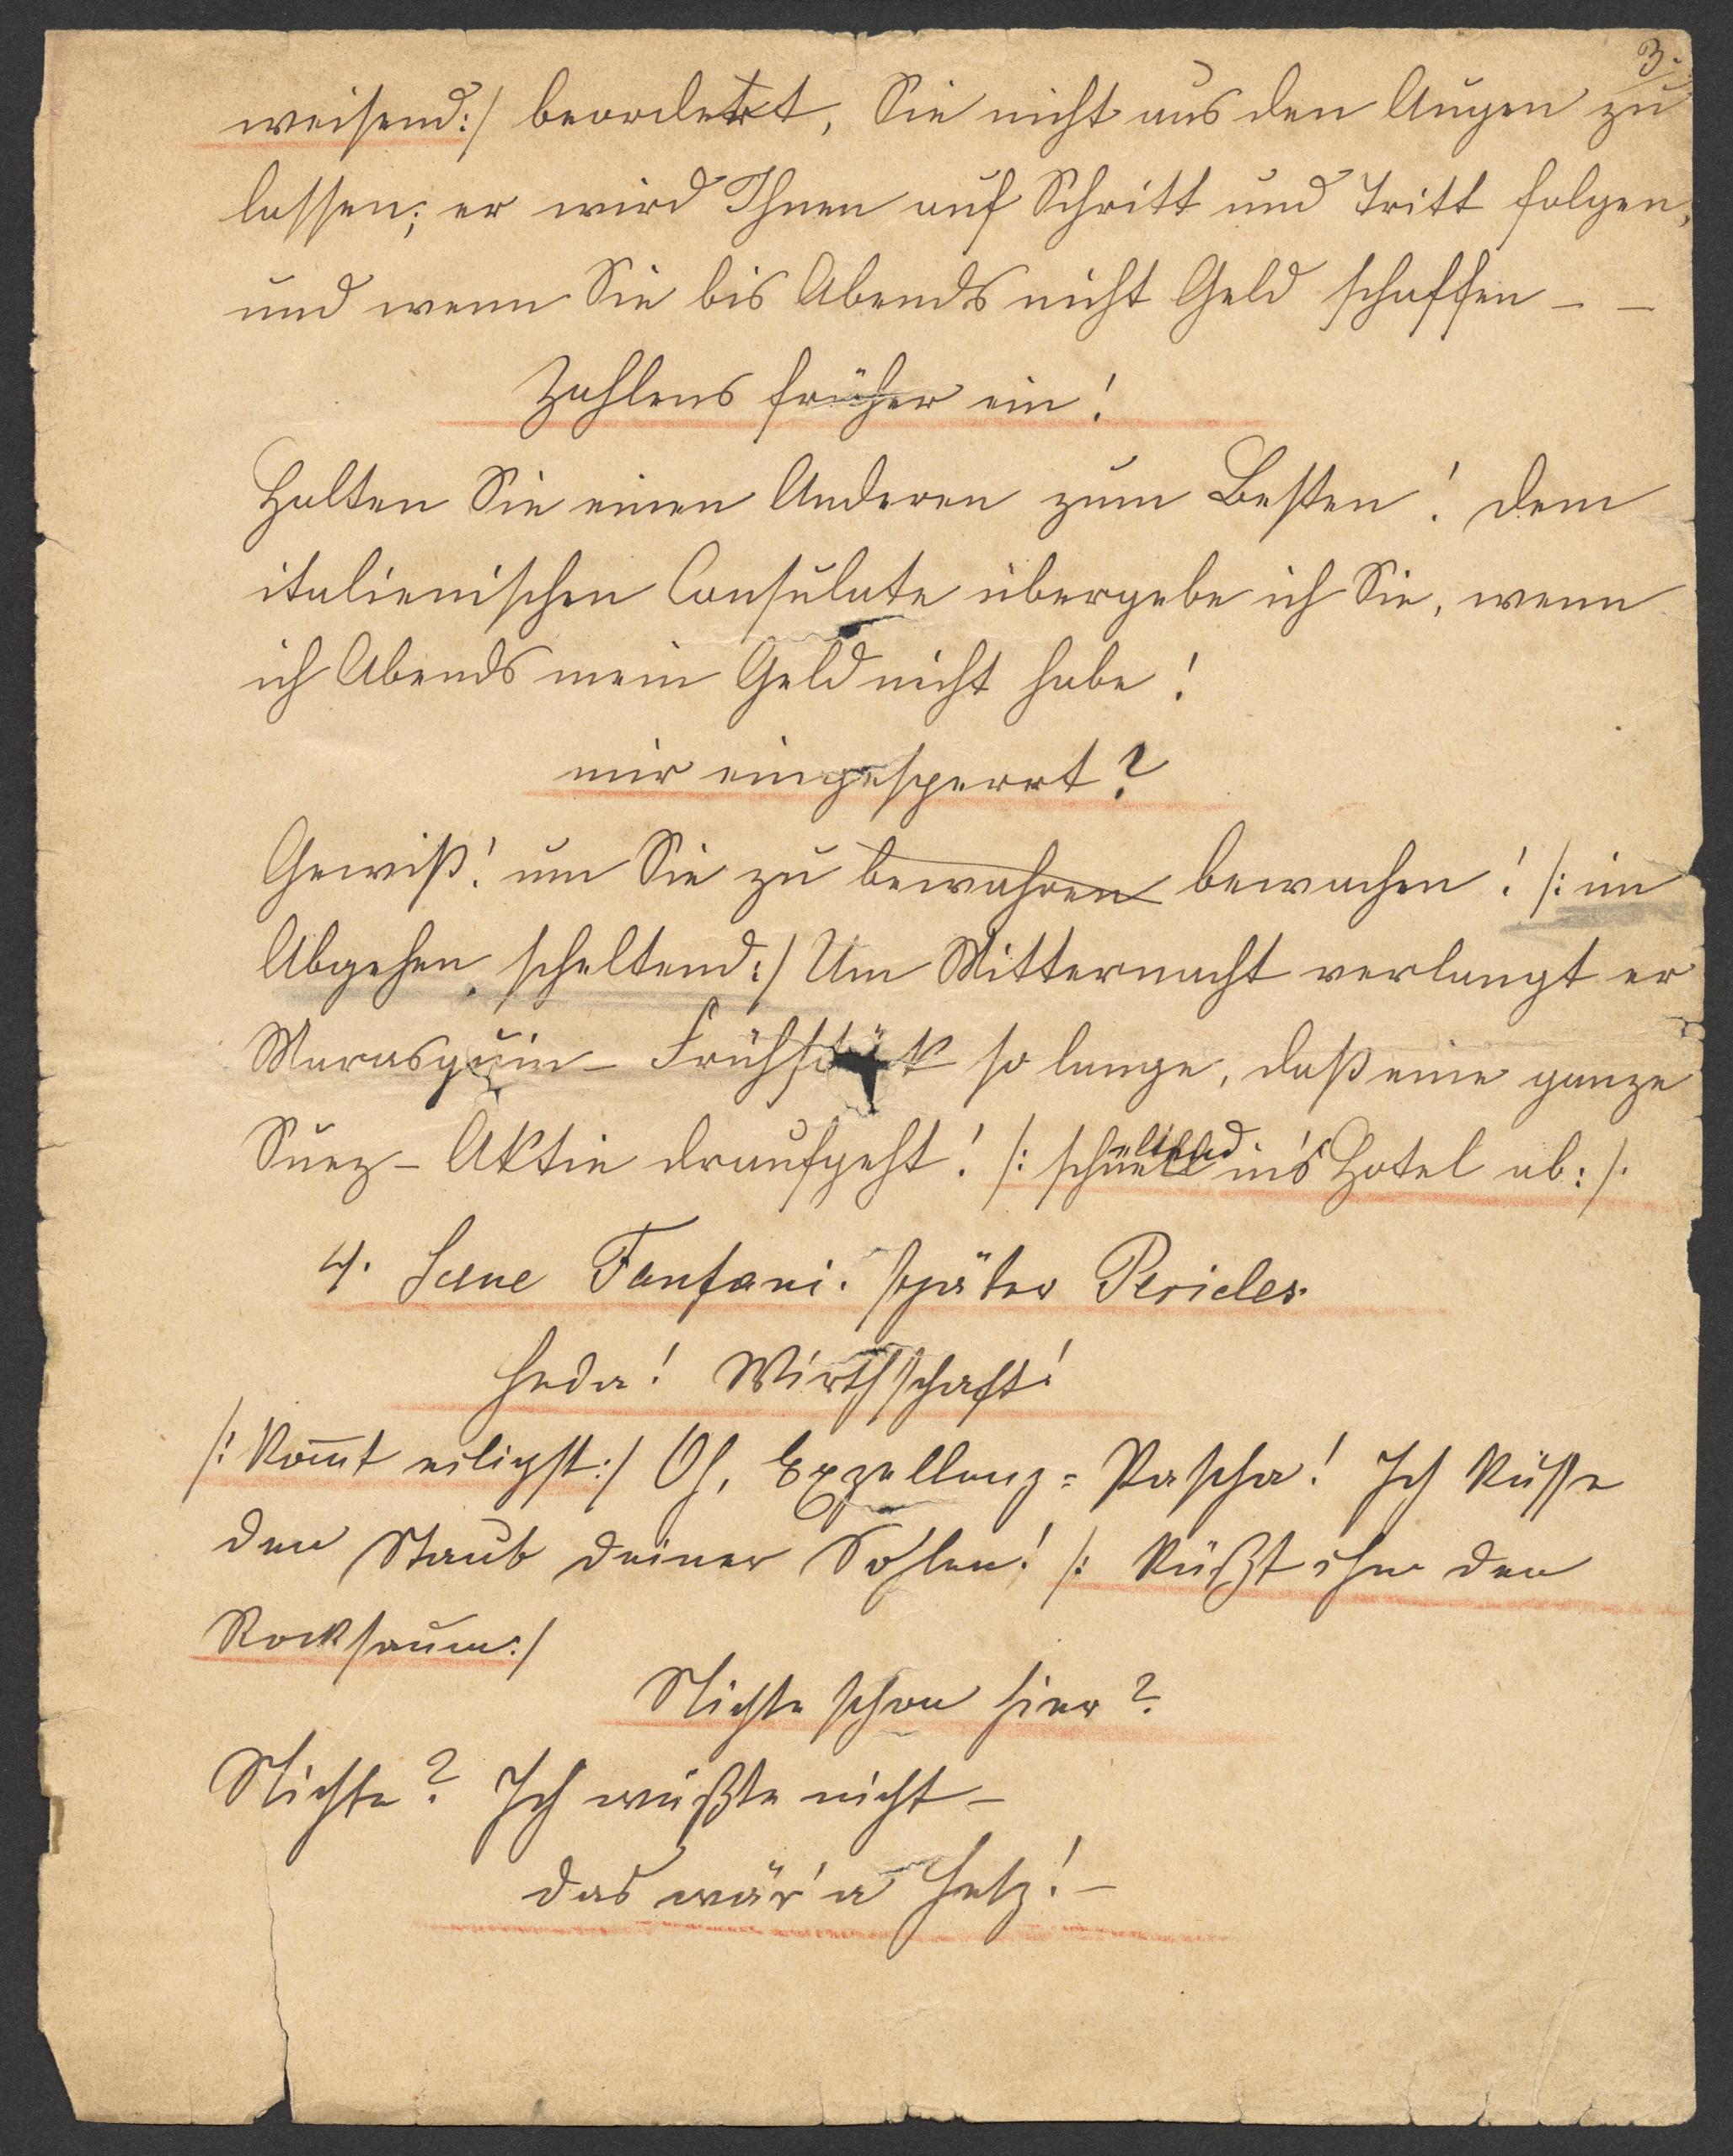 3.
weisend:/ beordert, Sie nicht aus den Augen zu
lassen; er wird Ihnen auf Schritt und Tritt folgen,
und wenn Sie bis Abends nicht Geld schaffen - -
Zahlens früher ein!
Halten Sie einen Anderen zum Besten! dem
italienischen Consulate übergebe ich Sie, wenn
ich Abends mein Geld nicht habe!
mir eingesperrt?
Gewiß! um Sie zu bewahren bewachen! /: im
Abgehen, scheltend:/ Um Mitternacht verlangt er
Marasquin - Frühstük so lange, daß eine ganze
Suez - Aktie draufgeht! /: schnell in's Hotel ab:/.
4. Scene Fanfani. später Pericles.
Heda! Wirthschaft!
/: Kom̅t eiligst:/ Oh, Exzellenz = Pascha! Ich küsse
den Staub deiner Sohlen! /: küßt ihm den
Rocksaum:/
Nichte schon hier?
Nichte? Ich wüßte nicht -
das wär' a Hetz! -